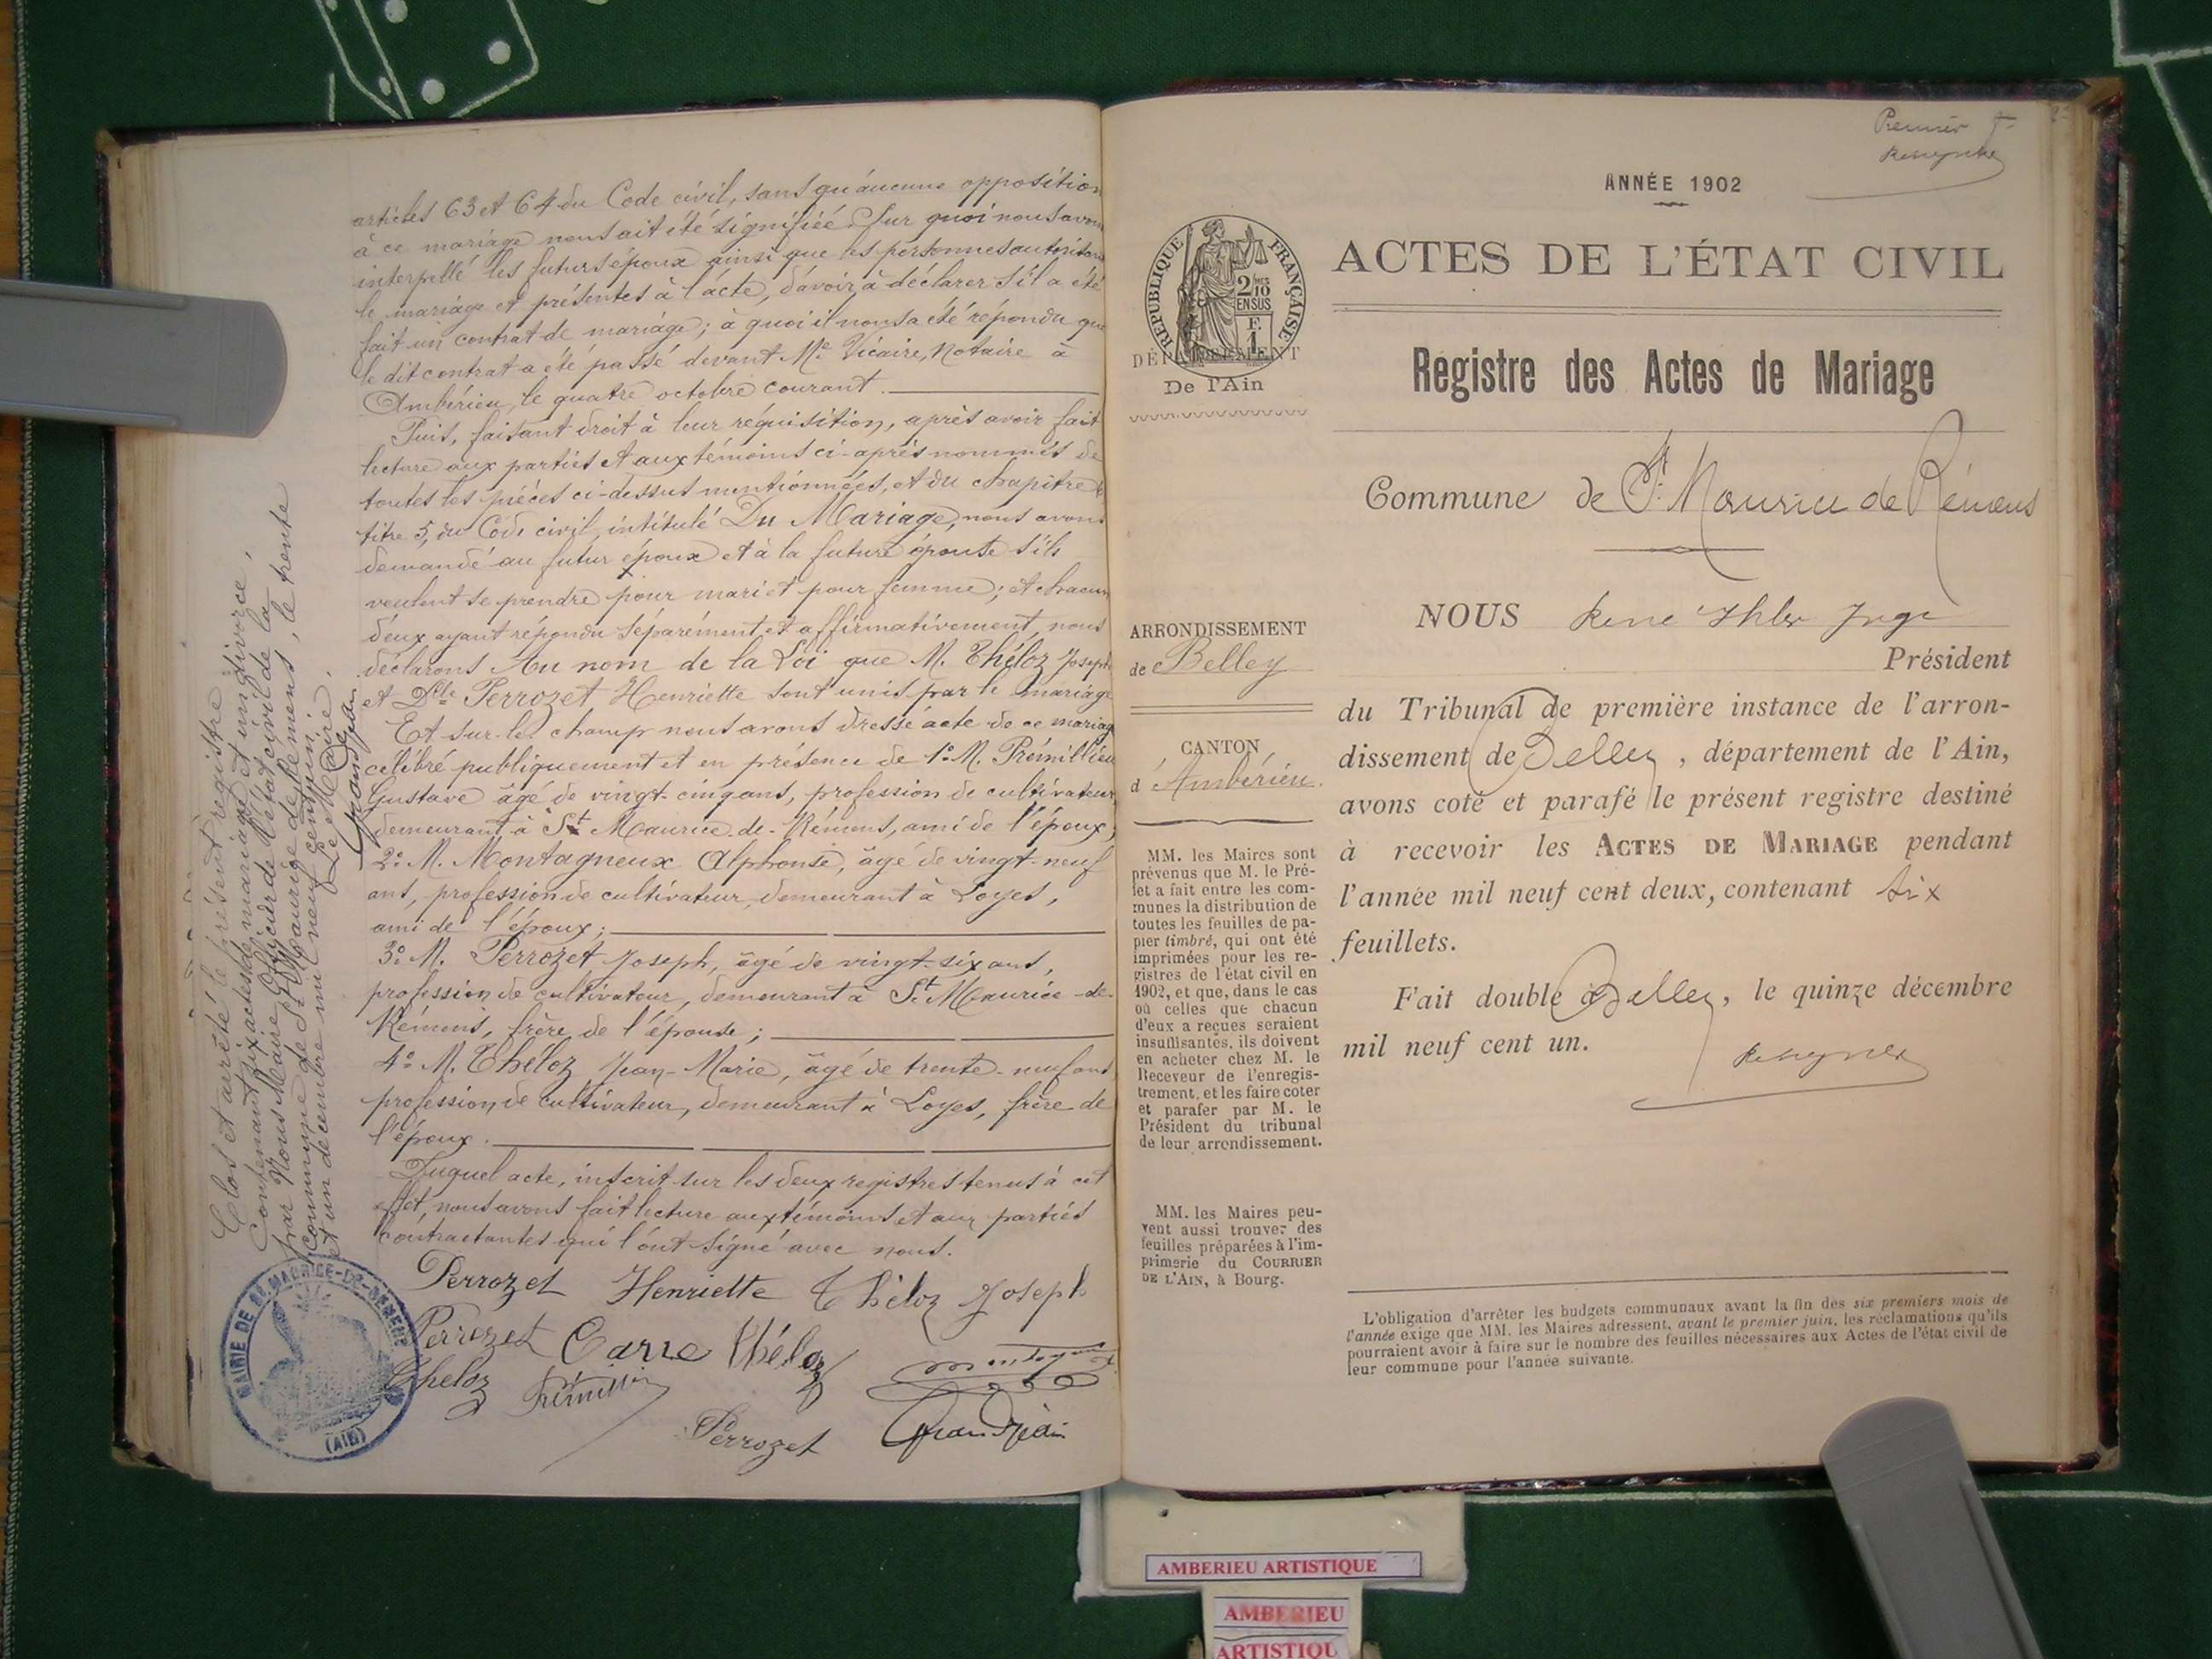 articles 63 et 64 du Code civil, sans qu'aucune opposition
à ce mariage nous ait été signifiée. Sur quoi nous avons
interpellé les futurs époux ainsi que les personnes autorisant
le mariage et présentes à l'acte, d'avoir à déclarer s'il a été
fait un contrat de mariage; à quoi il nous a été répondu que
le dit contrat a été passé devant Me Vicaire, Notaire à
Ambérieu, le quatre octobre courant.
Puis, faisant droit à leur réquisition, après avoir fait
lecture aux parties et aux témoins ci-après nommés de
toutes les pièces ci-dessus mentionnées, et du chapitre
titre 5, du Code civil, intitulé Du Mariage, nous avons
demandé au futur époux et à la future épouse s'ils
veulent se prendre pour mari et pour femme; et chacun
d'eux ayant répondu séparément et affirmativement, nous
déclarons Au nom de la Loi que M. Théloz Joseph
et Dlle Perrozet Henriette sont unis par le mariage
Et sur-le champ nous avons dressé acte de ce mariage
célébré publiquement et en présence de 1° M. Prémillieu
Gustave âgé de vingt-cinq ans, profession de cultivateur
demeurant à St Maurice-de-Rémens, ami de l'époux,
2° M. Montagneux Alphonse, âgé de vingt-neuf
ans, profession de cultivateur demeurant à Loyes,
ami de l'époux;
3° M. Perrozet Joseph, âgé de vingt-six ans,
profession de cultivateur, demeurant à St Maurice-de-
Rémens, frère de l'épouse;
4° M. Théloz Jean-Marie, âgé de trente-neuf ans
profession de cultivateur, demeurant à Loyes, frère de
l'époux.
Duquel acte, inscrit sur les deux registres tenus à cet
effet, nous avons fait lecture aux témoins et aux parties
contractantes qui l'ont signé avec nous.
Perrozet Henriette Théloz Joseph
Perrozet Carre Théloz
Theloz
Perrozet Grandjean
Clos et arrêté le présent registre
Contenant six actes de mariage et un divorce,
par Nous Maire Officier de l'état civil de la
commune de St Maurice de Rémens, le trente
et un décembre mil neuf cent un.
Le Maire.
Grandjean
MAIRIE DE ST. MAURICE-DE-REMENS
(AIN)
Premier f.
ANNÉE 1902
RÉPUBLIQUE FRANÇAISE
2/10 EN SUS
F. 1
DÉPARTEMENT
De l'Ain
ACTES DE L'ÉTAT CIVIL
Régistre des Actes de Mariage
Commune de St Maurice de Rémens
ARRONDISSEMENT
de Belley
CANTON
d'Ambérieu.
MM. les Maires sont
prévenus que M. le Pré-
fet a fait entre les com-
munes la distribution de
toutes les feuilles de pa-
pier timbré, qui ont été
imprimées pour les re-
gistres de l'état civil en
1902, et que, dans le cas
où celles que chacun
d'eux a reçues seraient
insuffisantes, ils doivent
en acheter chez M. le
Receveur de l'enregis-
trement, et les faire coter
et parafer par M. le
Président du tribunal
de leur arrondissement.
MM. les Maires peu-
vent aussi trouver des
feuilles préparées à l'im-
primerie du COURRIER
DE L'AIN, à Bourg.
NOUS René Juge
Président
du Tribunal de première instance de l'arron-
dissement de Belley, département de l'Ain,
avons coté et parafé le présent registre destiné
à recevoir les ACTES DE MARIAGE pendant
l'année mil neuf cent deux, contenant six
feuillets.
Fait double à Belley, le quinze décembre
mil neuf cent un.
L'obligation d'arrêter les budgets communaux avant la fin des six premiers mois de
l'année exige que MM. les Maires adressent, avant le premier juin, les réclamations qu'ils
pourraient avoir à faire sur le nombre des feuilles nécessaires aux Actes de l'état civil de
leur commune pour l'année suivante.
AMBERIEU ARTISTIQUE
AMBERIEU
ARTISTIQU